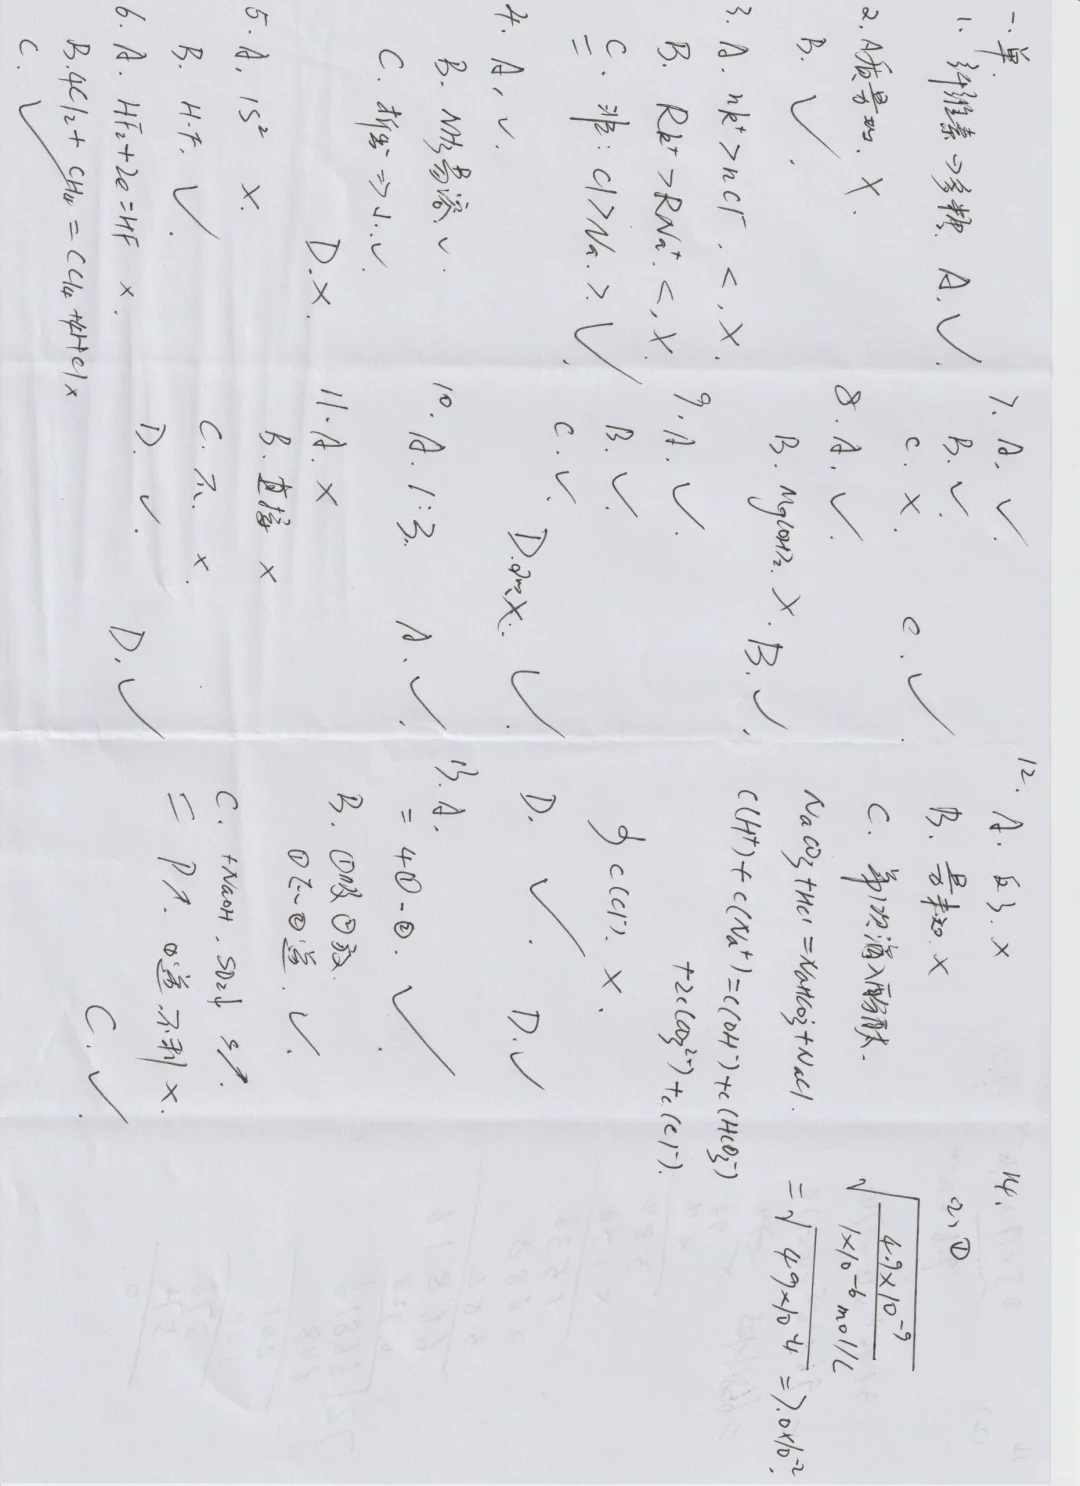 一、单.
1. 纤维素→多糖. A. ✓.
2. A质量数. X.
B. ✓.
3. A. nk⁺>nCl⁻. <, X.
B. Rk⁺>RNa⁺. <, X.
C. 非: Cl>Na. >. ✓.
=
4. A. ✓.
B. NH₃易溶 ✓.
C. ⇒↓. ✓
D. X.
5. A. 1S² X.
B. H:F. ✓.
6. A. HF₂+2e=HF X.
B. 4Cl₂+CH₄=CCl₄+4HCl X
C. ✓
7. A. ✓.
B. ✓.
C. X.
C. ✓.
8. A. ✓.
B. Mg(OH)₂. X. B. ✓.
9. A. ✓.
B. ✓.
C. ✓.
D. X. ✓.
10. A. 1:3. A. ✓.
11. A. X
B. 直接 X
C. 不. X.
D. ✓.
D. ✓
12. A. X
B. X
C. 第1次滴入酚酞.
NaCO₃+HCl=NaHCO₃+NaCl.
C(H⁺)+C(Na⁺)=C(OH⁻)+C(HCO₃⁻)
+2C(CO₃²⁻)+C(Cl⁻).
C(Cl⁻). X.
D. ✓. D. ✓
13. A.
=4①-②. ✓.
B. ①吸②放.
✓.
C. +NaOH, SO₂↓ S↗.
= P↗. 不利 X.
C. ✓.
14.
2, ①
√(4.9×10⁻⁹ / 1×10⁻⁶mol/L)
=√(49×10⁻⁴)=7.0×10⁻².